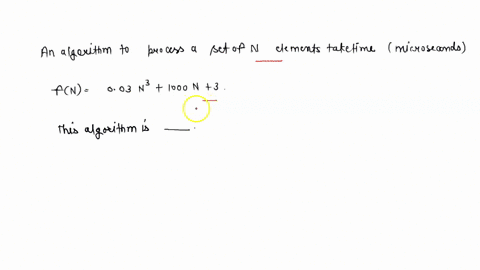 An algorithm to process a set of N elements take time (microseconds)
f(N) = 0.03 N³ + 1000 N + 3.
This algorithm is ___.